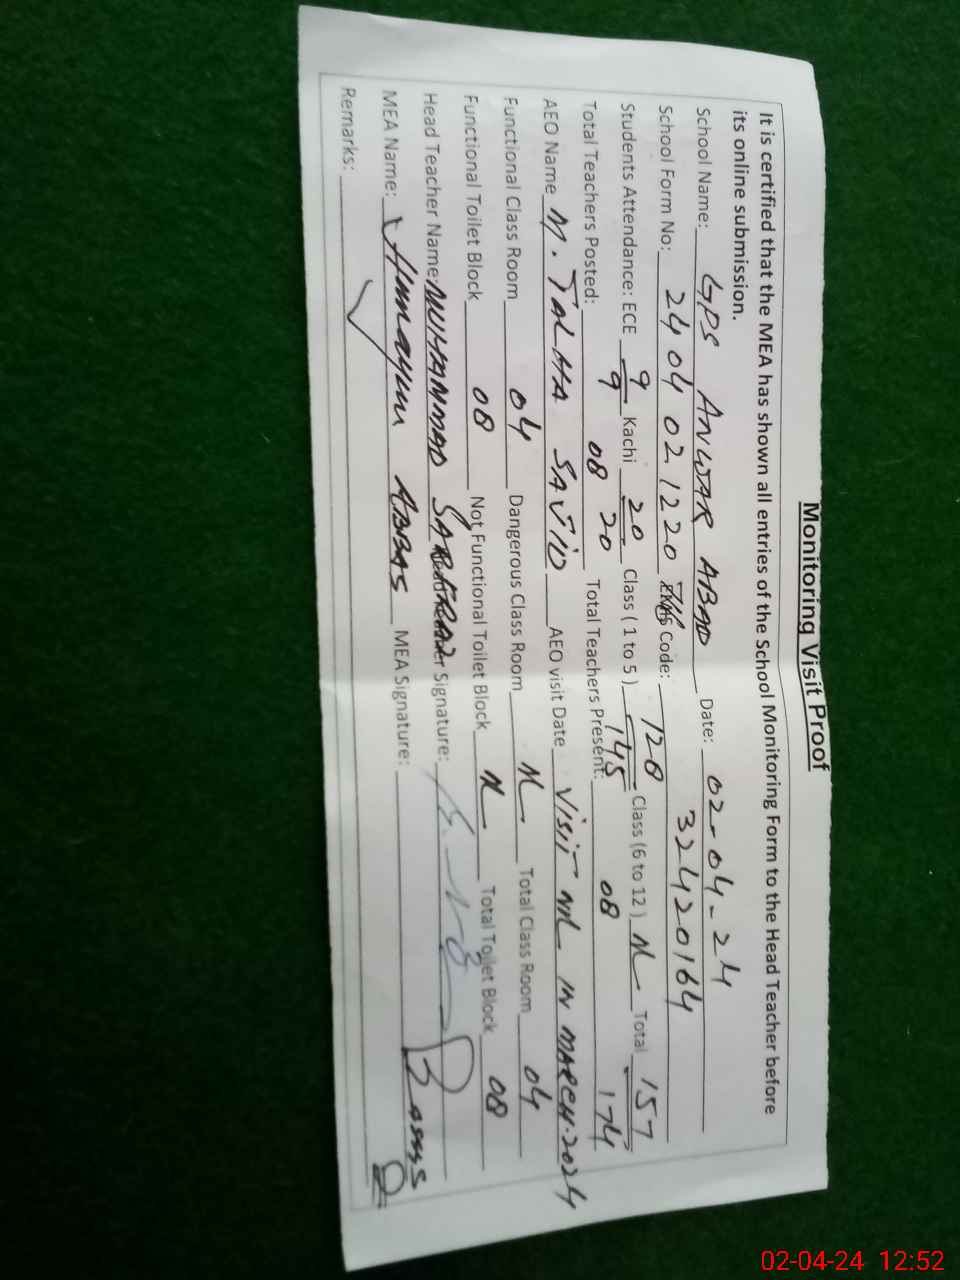 Monitoring Visit Proof
It is certified that the MEA has shown all entries of the School Monitoring Form to the Head Teacher before
its online submission.
School Name: GPS ANWAR ABAD Date: 02-04-24
School Form No: 24 04 02 1220 Code: 32420164
Students Attendance: ECE 9/9 Kachi 20/20 Class (1 to 5) 128/145 Class (6 to 12) NL Total 157/174
Total Teachers Posted: 08 Total Teachers Present: 08
AEO Name M. TALHA SAVID AEO visit Date VISIT NIL IN MARCH.2024
Functional Class Room 04 Dangerous Class Room NL Total Class Room 04
Functional Toilet Block 08 Not Functional Toilet Block NL Total Toilet Block 08
Head Teacher Name: MUHAMMAD Signature:
MEA Name: Humayun ABBAS MEA Signature:
Remarks:
02-04-24 12:52